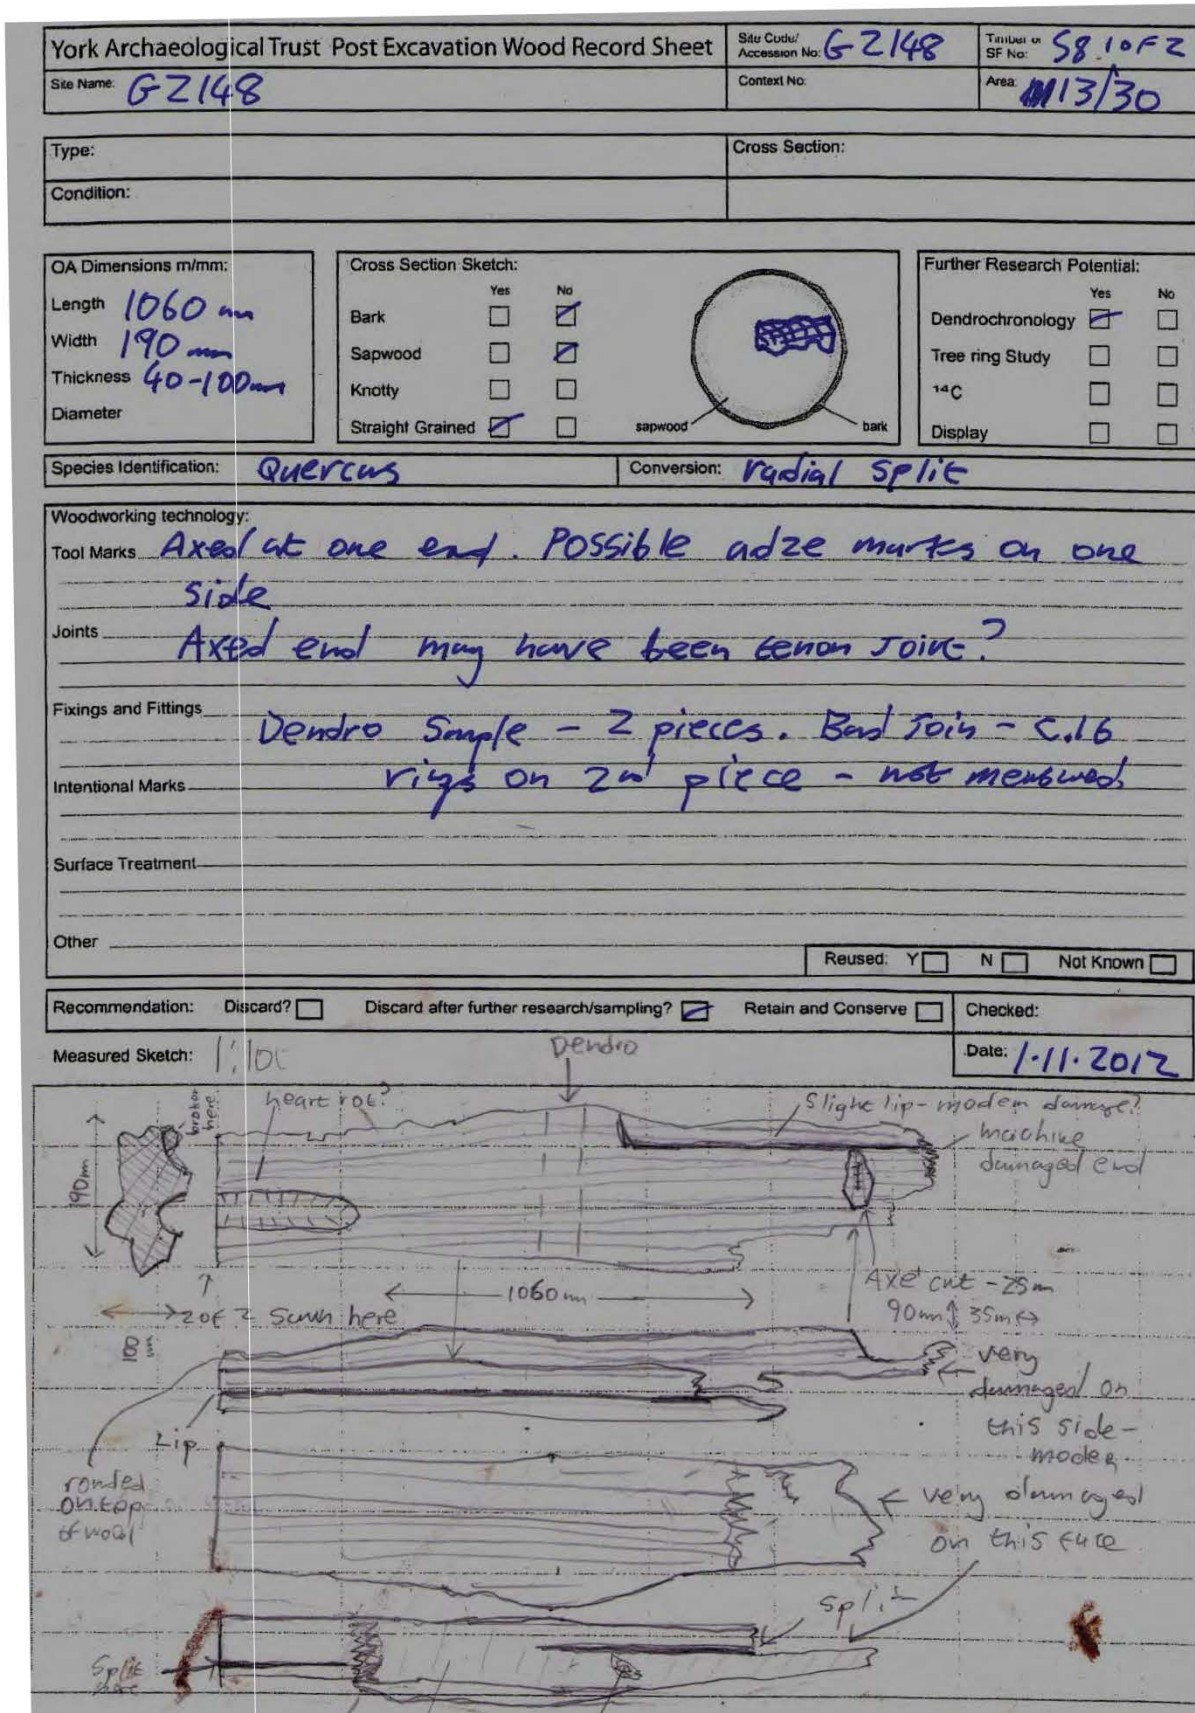 York Archaeological Trust Post Excavation Wood Record Sheet
Site Code/ Accession No: GZ148
Timber or SF No: S8 1 OF 2
Site Name: GZ148
Context No:
Area: 13/30
Type:
Cross Section:
Condition:
OA Dimensions m/mm:
Length 1060 mm
Width 190 mm
Thickness 40-100mm
Diameter
Cross Section Sketch:
Yes No
Bark
Sapwood
Knotty
Straight Grained
sapwood
bark
Further Research Potential:
Yes No
Dendrochronology
Tree ring Study
14C
Display
Species Identification: Quercus
Conversion: radial split
Woodworking technology:
Tool Marks Axed at one end. Possible adze marks on one
side
Joints
Axed end may have been tenon Joint?
Fixings and Fittings
Dendro Sample - 2 pieces. Bad Join - c.16
Intentional Marks
rings on 2nd piece - not measured
Surface Treatment
Other
Reused: Y N Not Known
Recommendation: Discard? Discard after further research/sampling? Retain and Conserve
Checked:
Measured Sketch: 1:10
Dendro
Date: 1.11.2012
broken here
heart rot?
Slight lip - modern damage?
machine
damaged end
190m
1060mm
Axe cut - 25m
90mm 35m
2 of 2 Sawn here
very
damaged on
this side -
Lip
ronded
on top
of wood
very damaged
on this face
split
Split
here